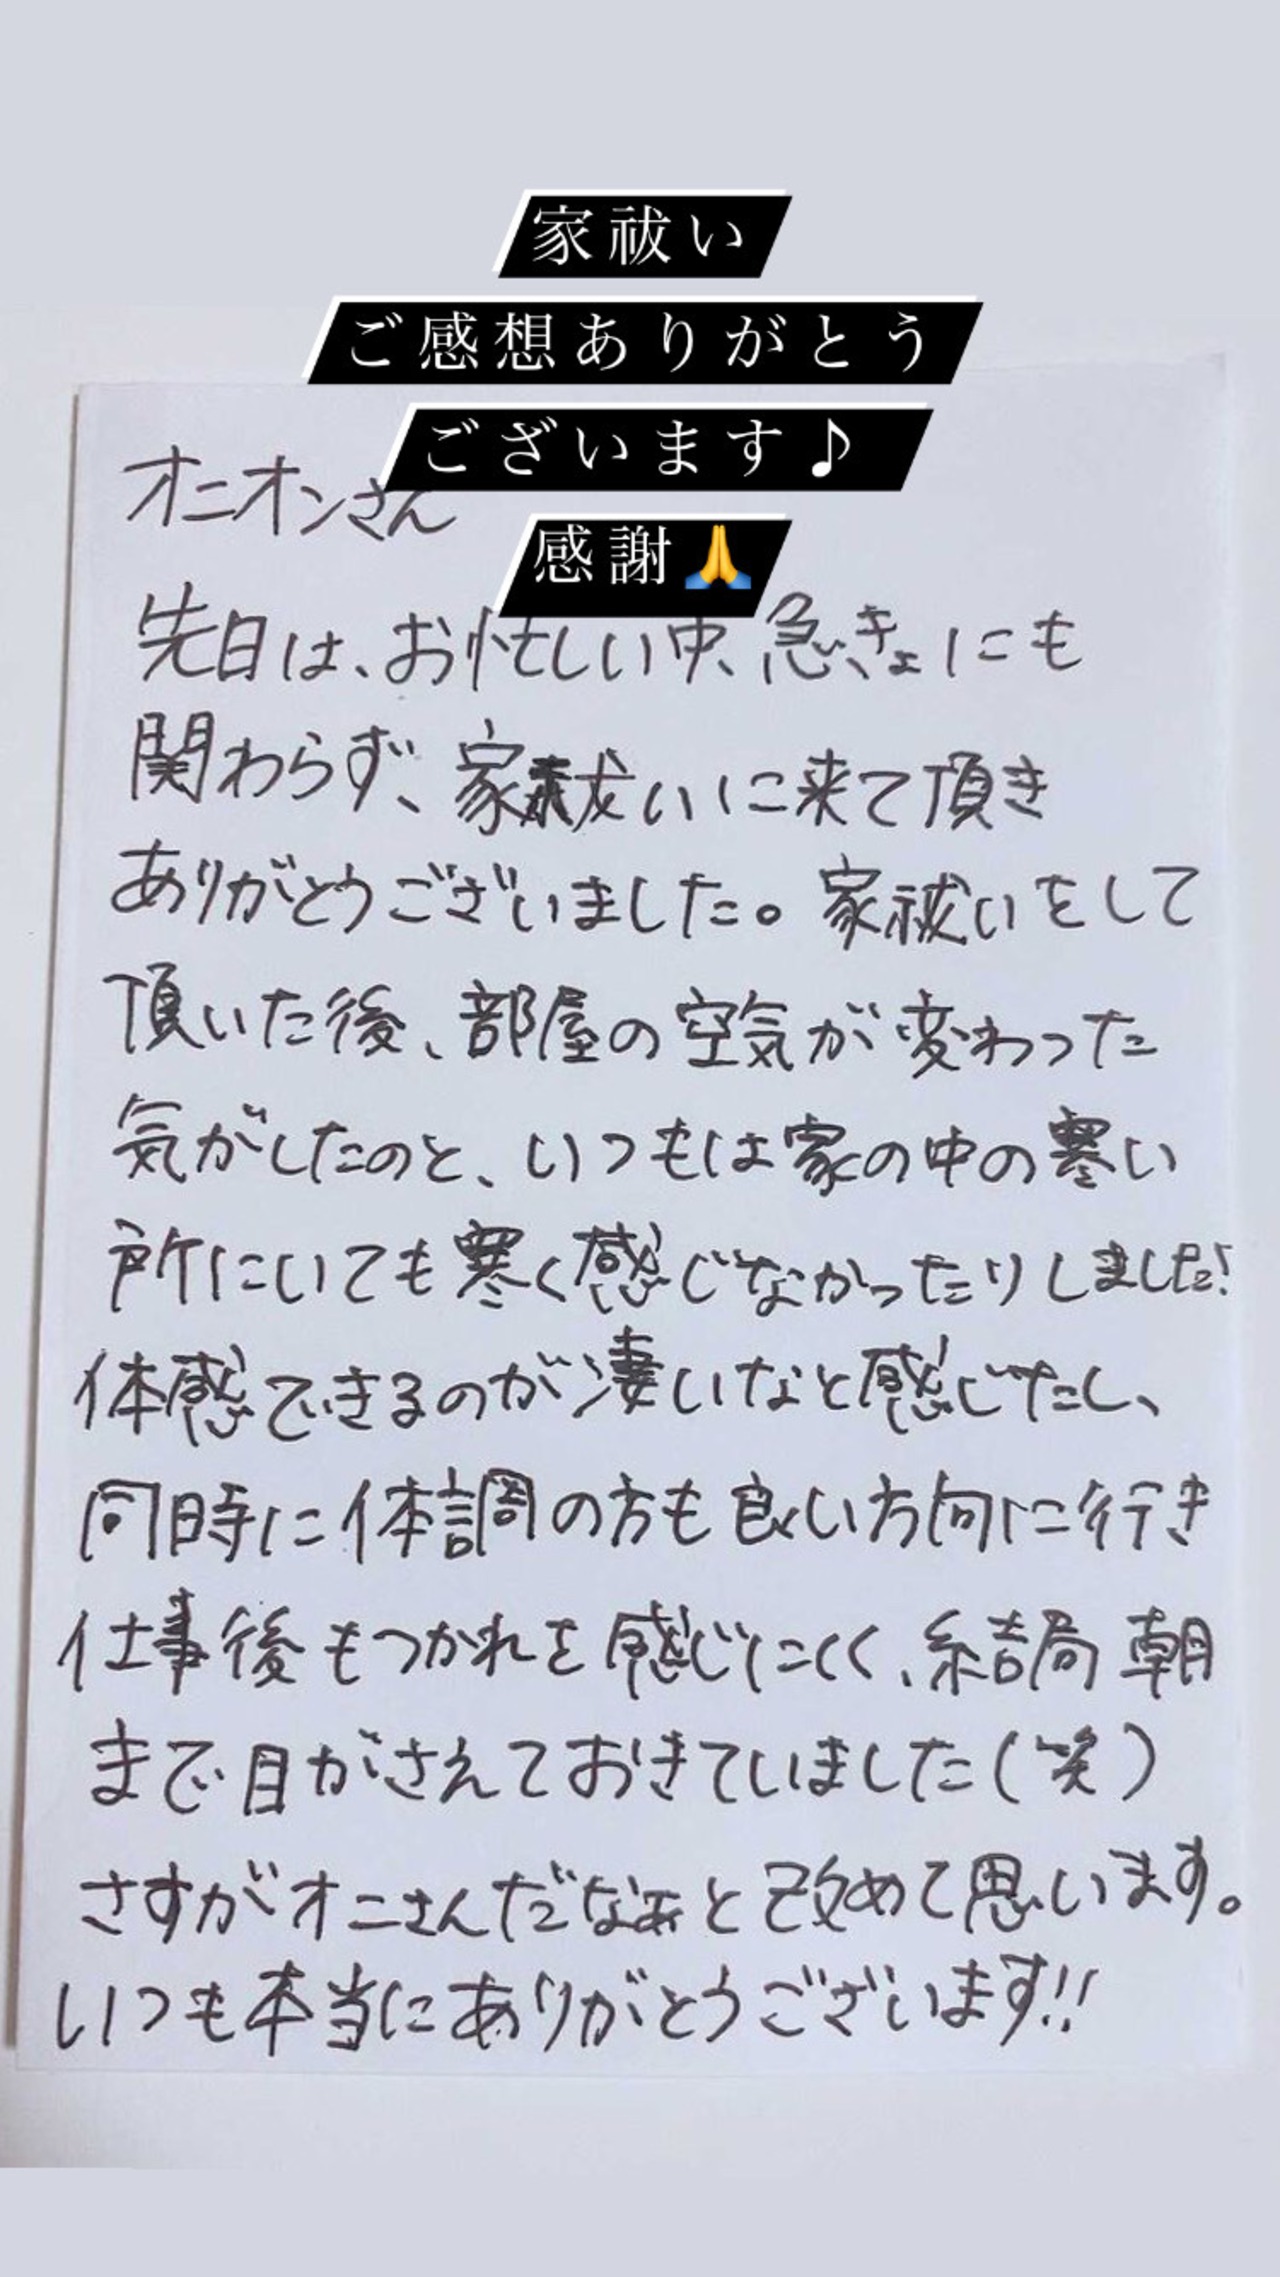 家祓い
ご感想ありがとう
ございます♪
感謝🙏
オニオンさん
先日は、お忙しい中、急きょにも
関わらず、家祓いに来て頂き
ありがとうございました。家祓いをして
頂いた後、部屋の空気が変わった
気がしたのと、いつもは家の中の寒い
所にいても寒く感じなかったりしました!
体感できるのが凄いなと感じたし、
同時に体調の方も良い方向に行き
仕事後もつかれを感じにくく、結局朝
まで目がさえておきていました(笑)
さすがオニさんだなぁと改めて思います。
いつも本当にありがとうございます!!